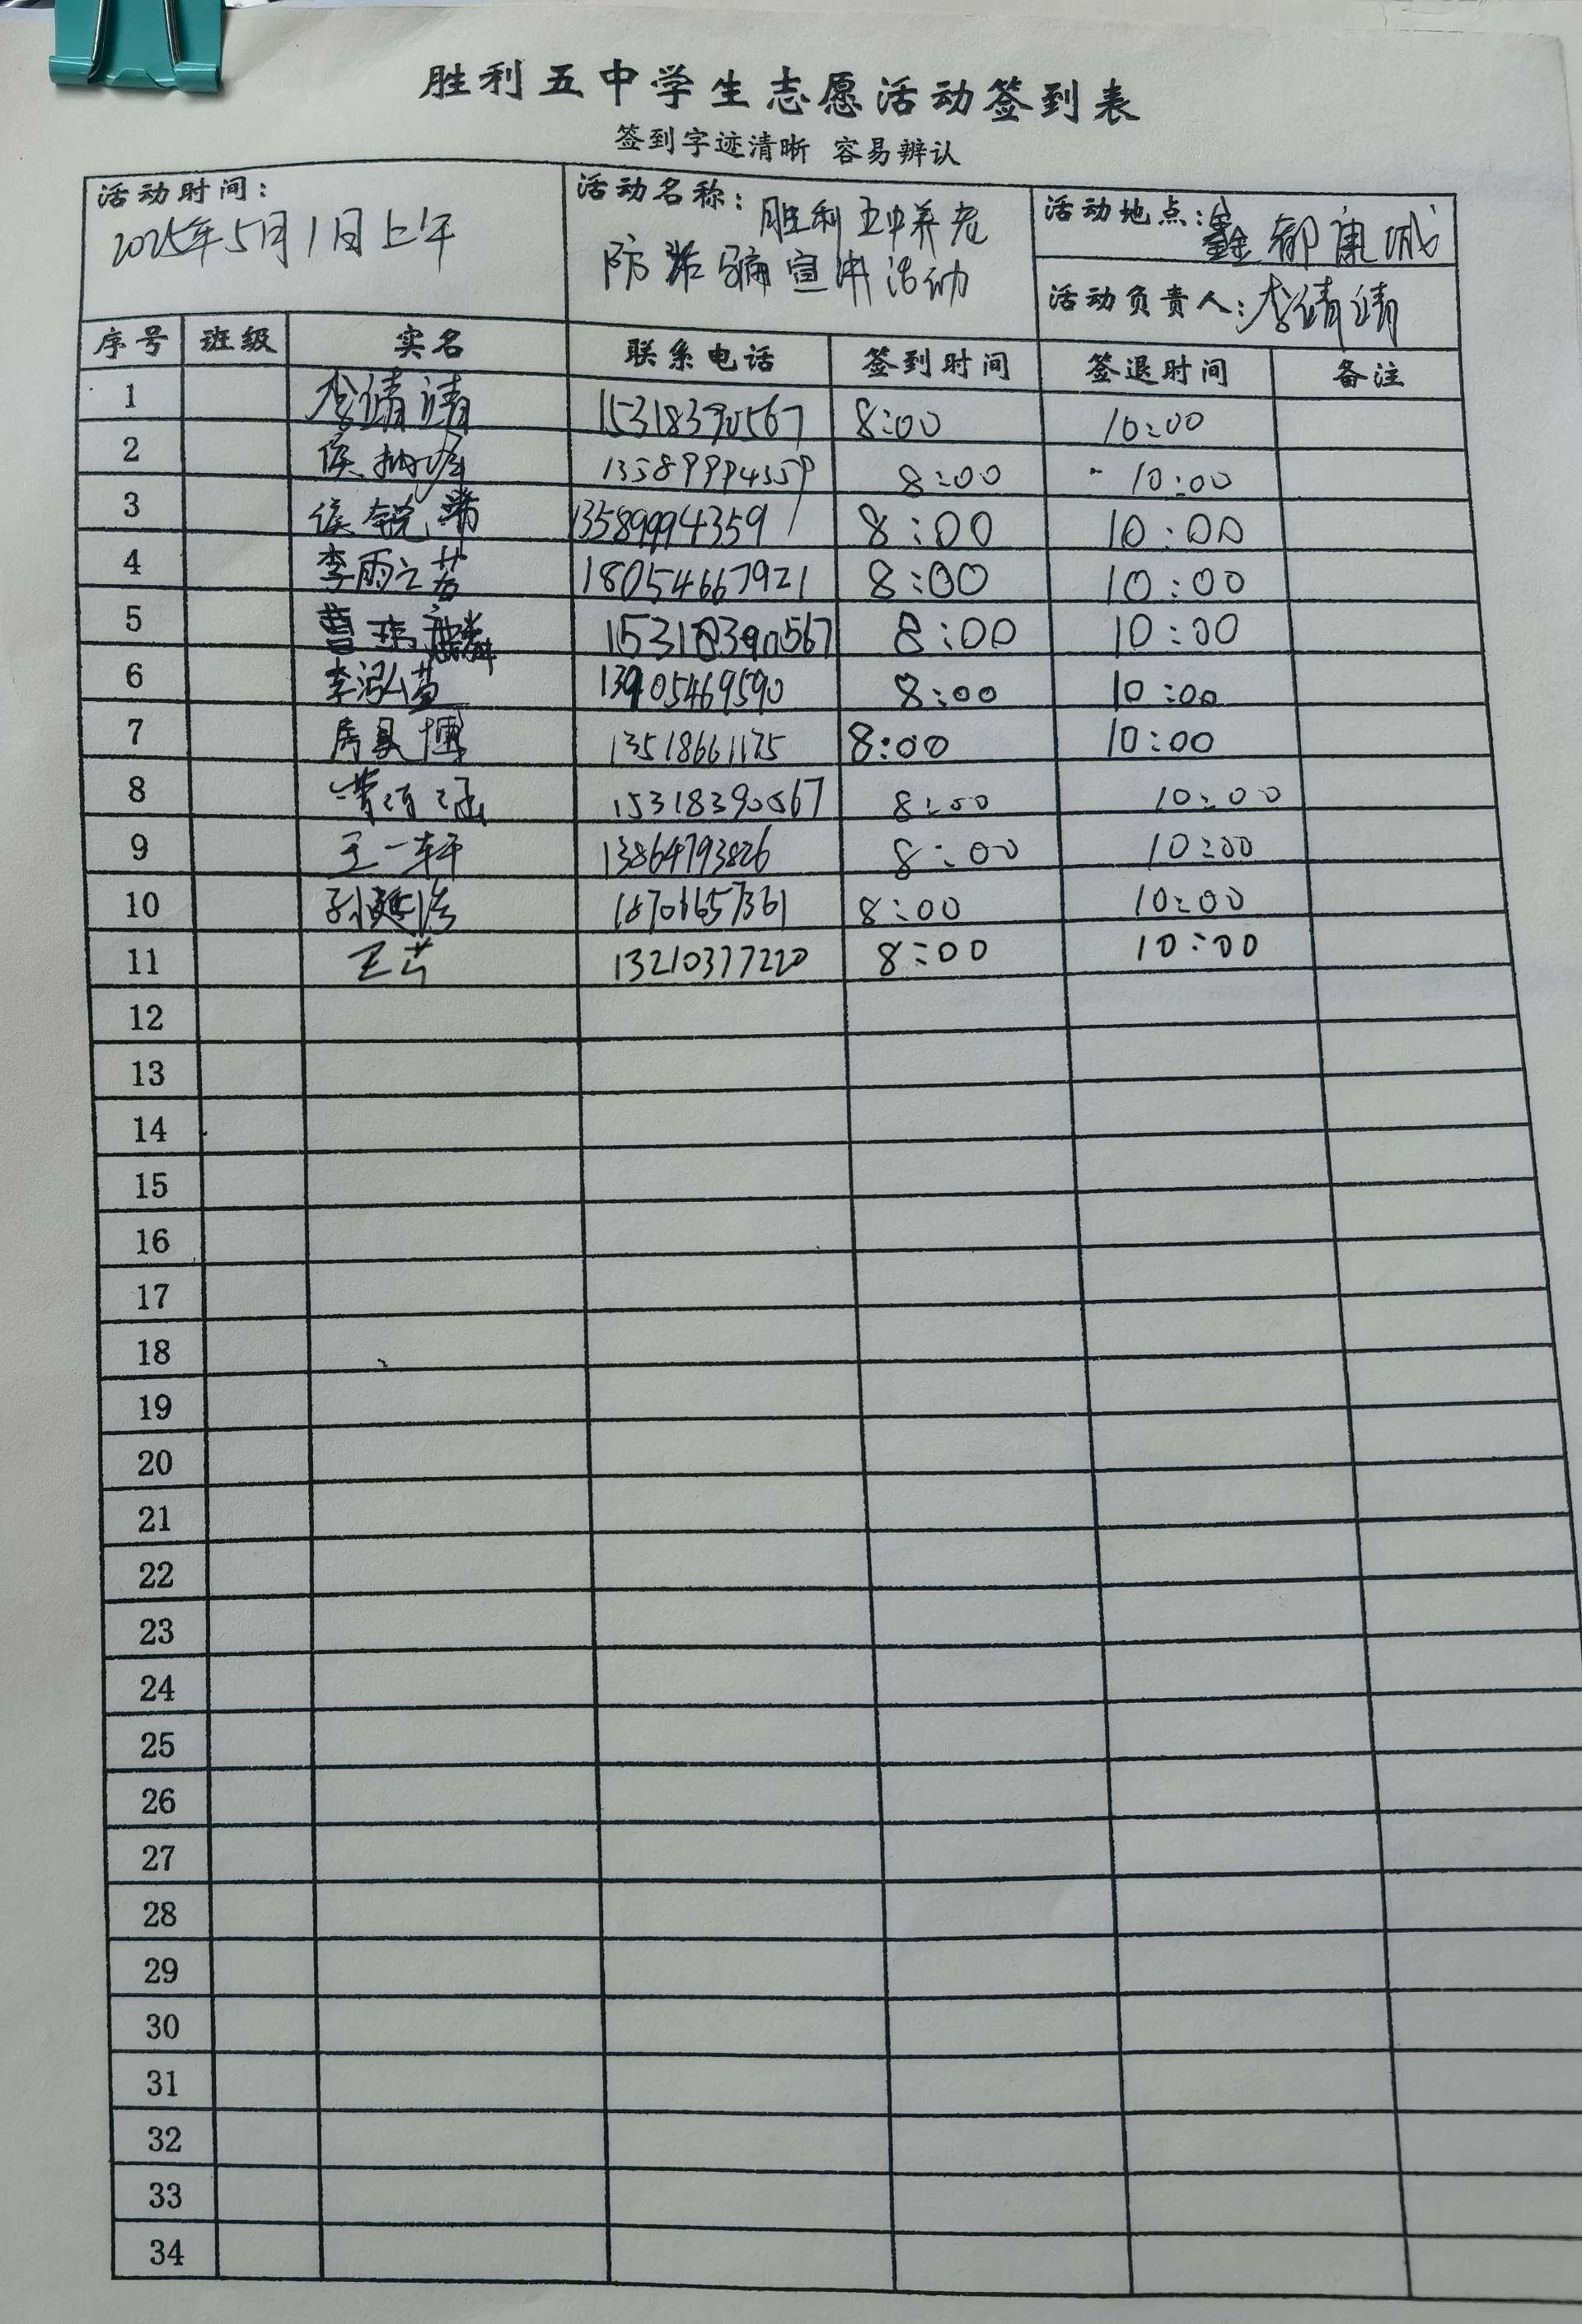 胜利五中学生志愿活动签到表
签到字迹清晰 容易辨认
活动时间: 2025年5月1日上午
活动名称: 胜利五中养老
防诈骗宣讲活动
活动地点: 鑫都康城
活动负责人: 李靖靖
序号 班级 实名 联系电话 签到时间 签退时间 备注
1 李靖靖 15318390567 8:00 10:00
2 侯 13589994359 8:00 10:00
3 侯锐 13589994359 8:00 10:00
4 李雨之 18054667921 8:00 10:00
5 曹玮麟 15318390567 8:00 10:00
6 李泓 13905469590 8:00 10:00
7 房昊博 13518661175 8:00 10:00
8 15318390567 8:00 10:00
9 王一轩 13864793826 8:00 10:00
10 孙延浩 18706657361 8:00 10:00
11 王芳 13210377220 8:00 10:00
12
13
14
15
16
17
18
19
20
21
22
23
24
25
26
27
28
29
30
31
32
33
34